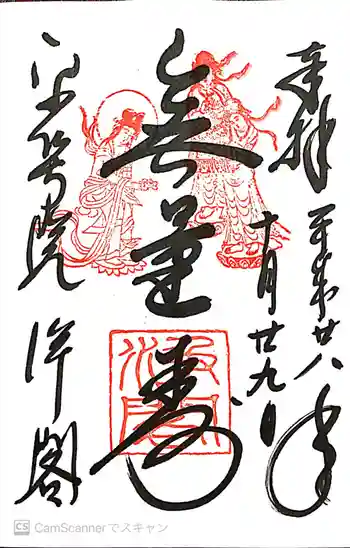 奉拝
平成廿八年
十月廿九日
無量寿
平等院 鳳凰閣
CamScannerでスキャン